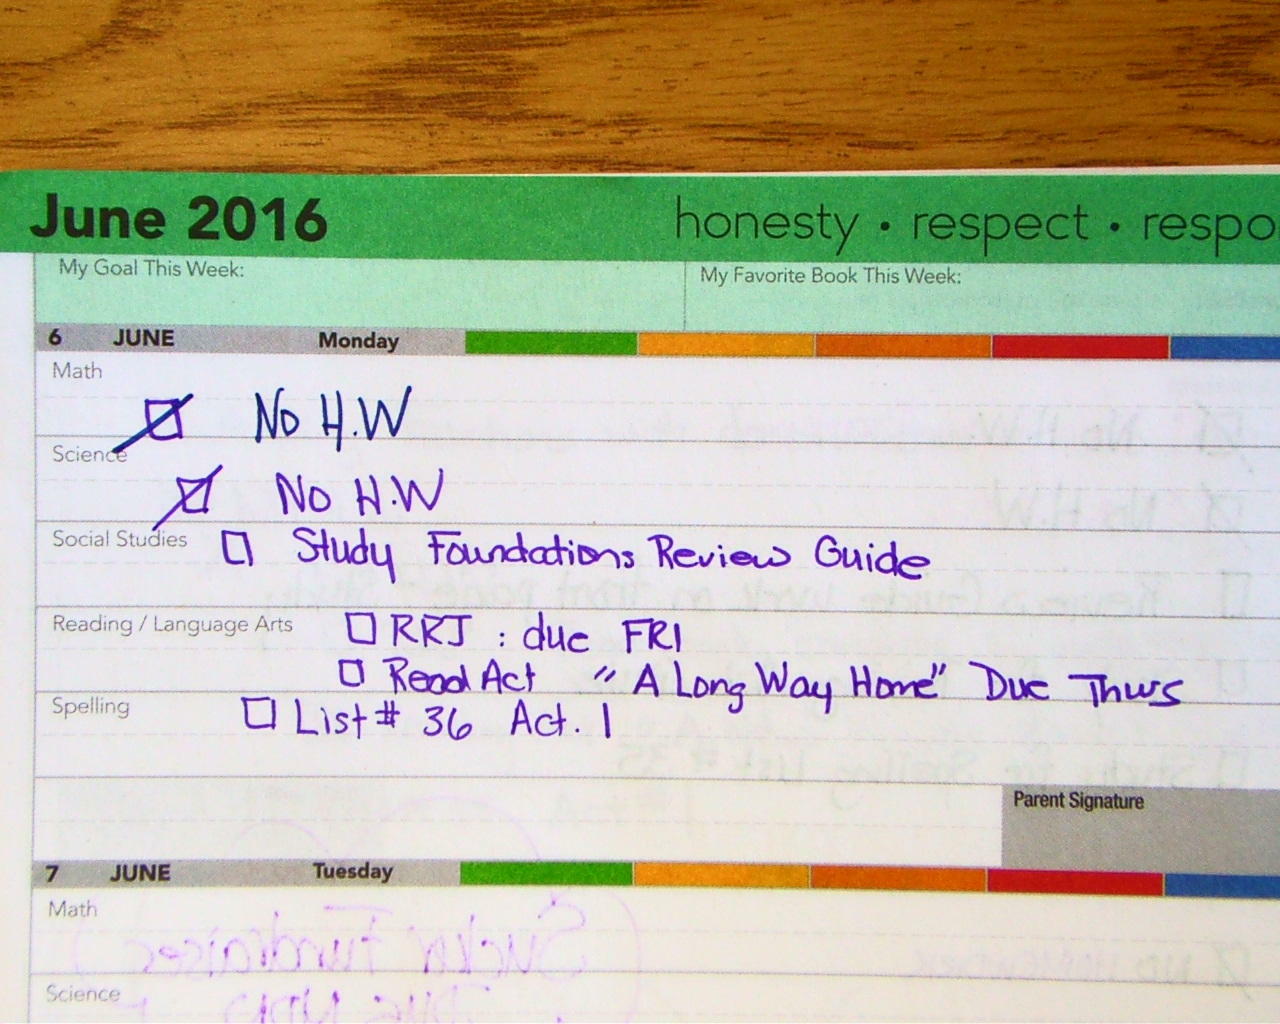 June 2016 honesty • respect • respo
My Goal This Week: My Favorite Book This Week:
6 JUNE Monday
Math
No H.W
Science
No H.W
Social Studies Study Foundations Review Guide
Reading / Language Arts RRJ : due FRI
Read Act "A Long Way Home" Due Thurs
Spelling List # 36 Act. 1
Parent Signature
7 JUNE Tuesday
Math
Science